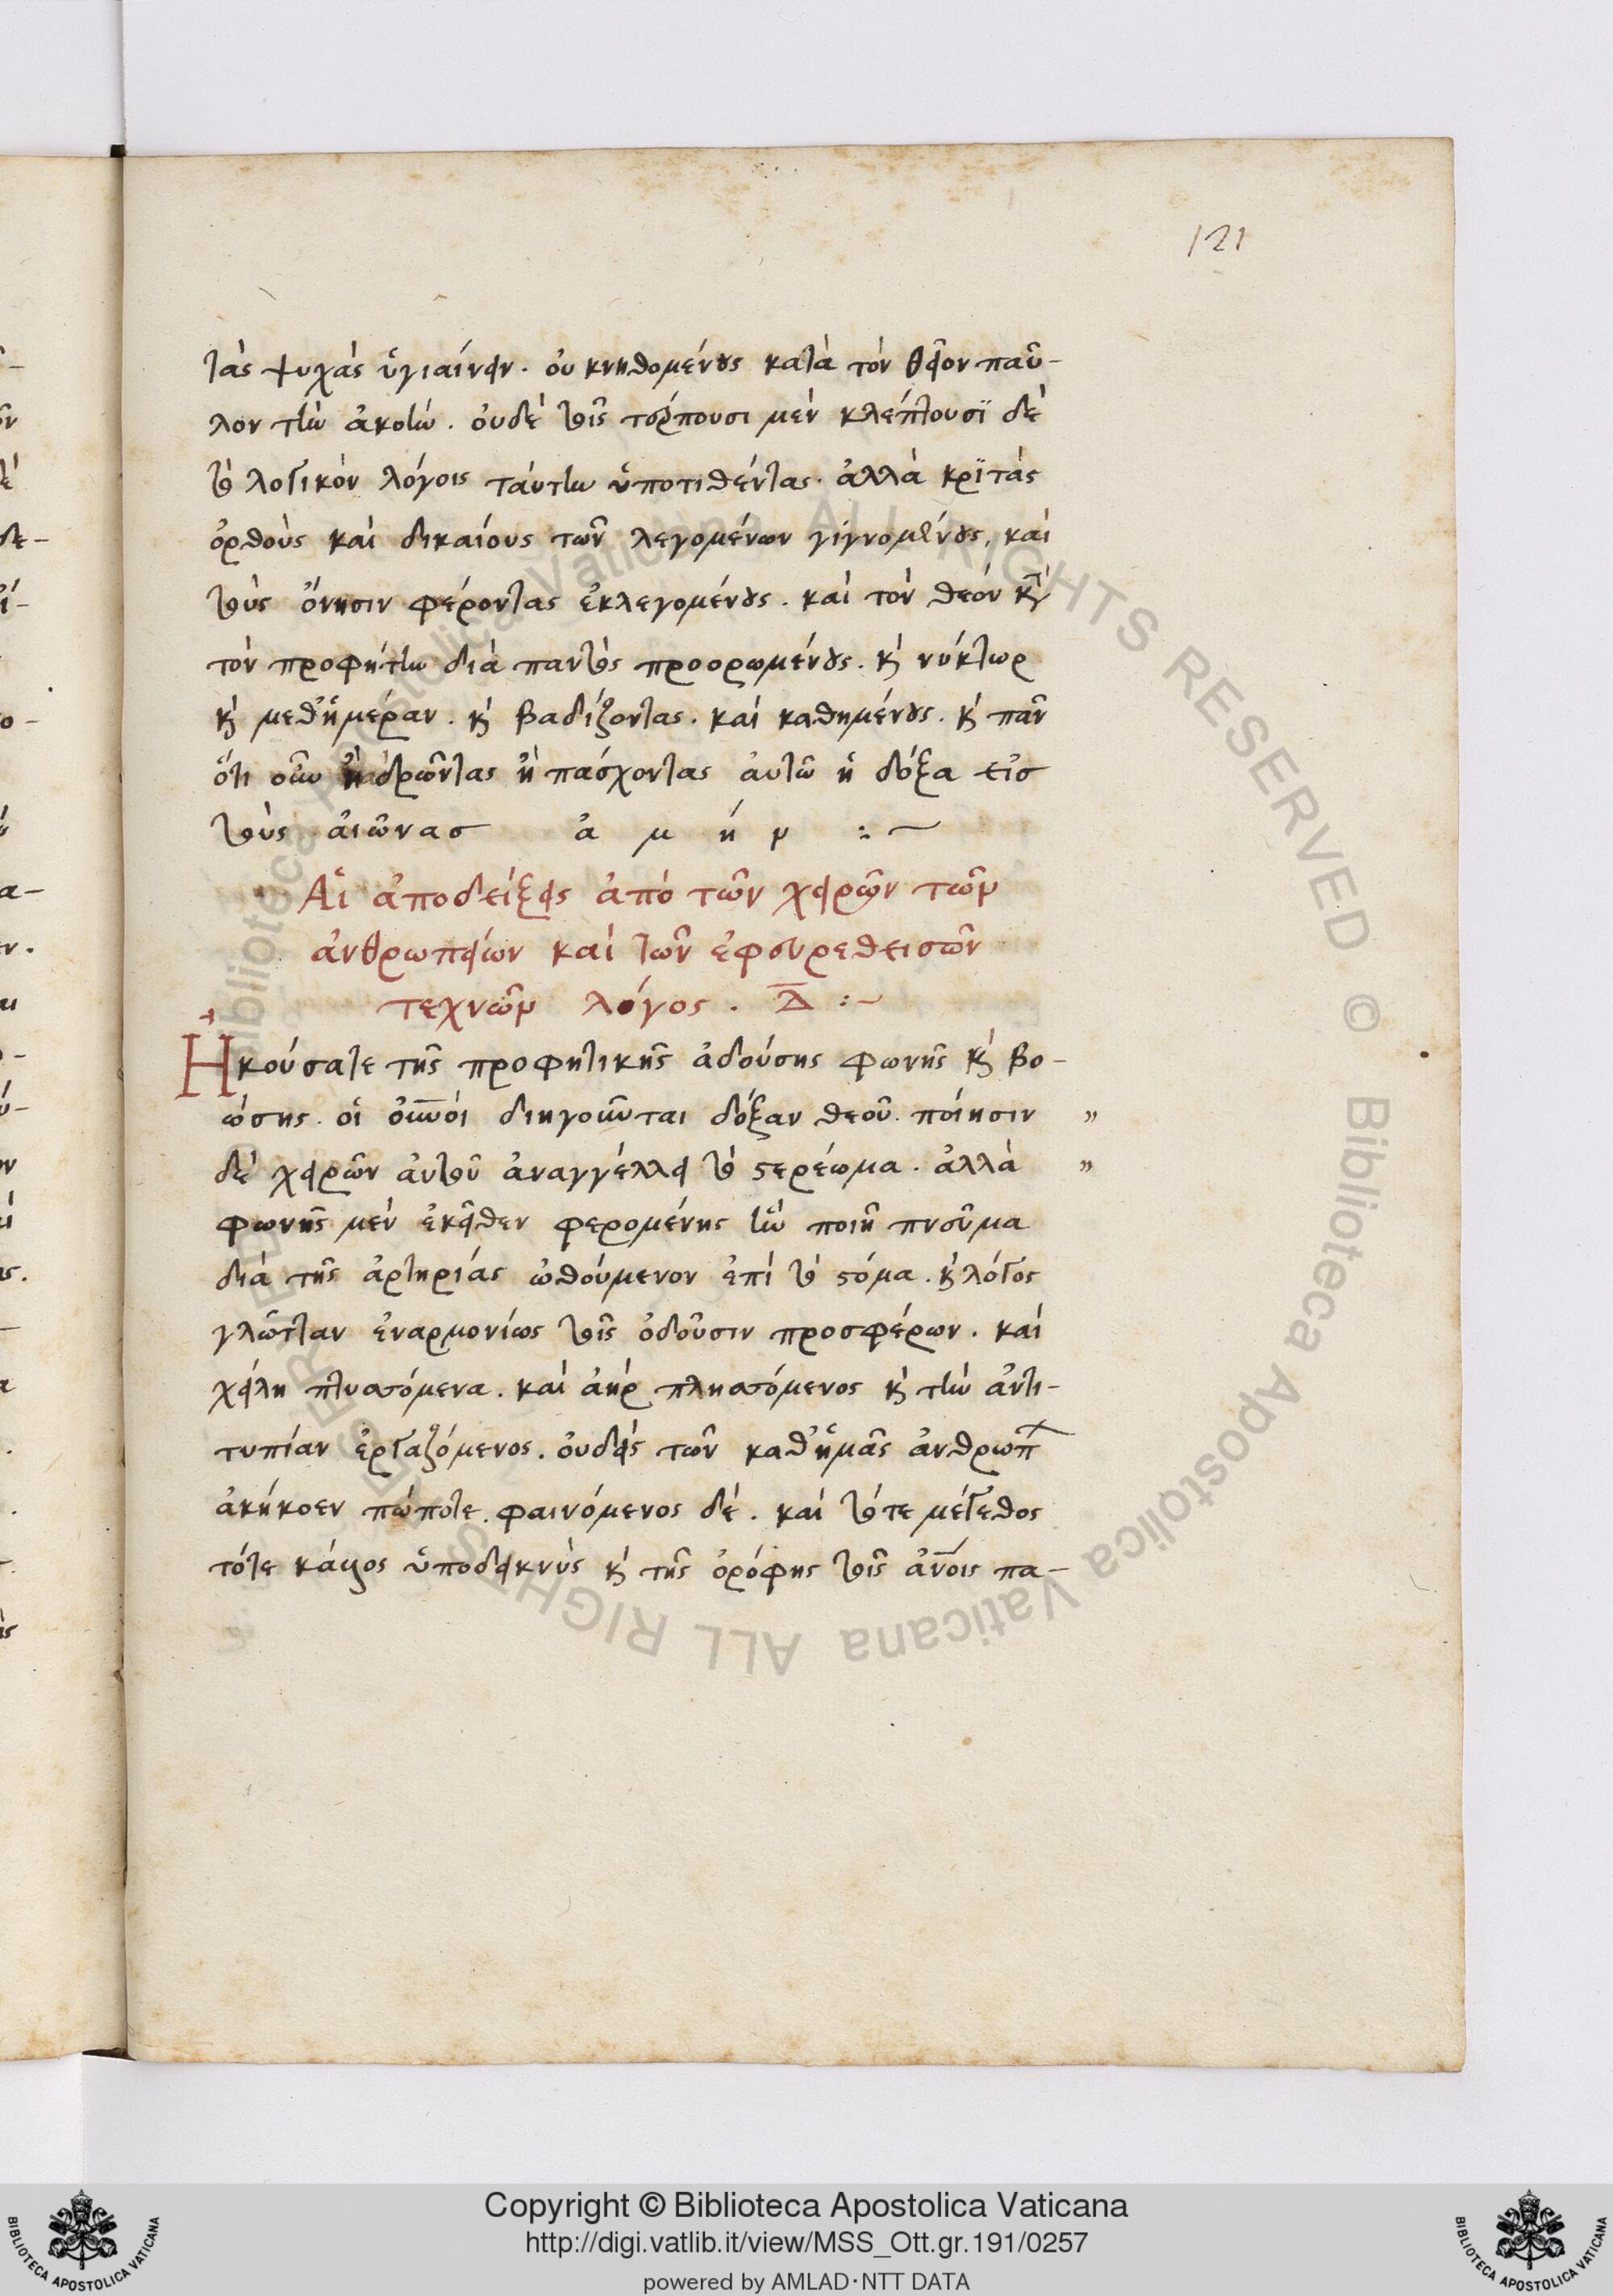 121
τὰς ψυχὰς ὑγιαίνειν. οὐ κνηθομένους κατὰ τὸν θεῖον παῦ-
λον τὴν ἀκοὴν. οὐδὲ τοῖς τέρπουσι μὲν κλέπτουσϊ δὲ
τὸ λογικὸν λόγοις ταύτην ὑποτιθέντας. ἀλλὰ κρϊτὰς
ὀρθοὺς καὶ δικαίους τῶν λεγομένων γίγνομένους, καὶ
τοὺς ὄνησιν φέροντας ἐκλεγομένους. καὶ τὸν θεὸν καὶ
τὸν προφήτην διὰ παντὸς προορωμένους. κ̀ νύκτωρ
κ̀ μεθ᾽ ἡμέραν. κ̀ βαδίζοντας. καὶ καθημένους. κ̀ πᾶν
ὅτι οὖν ἢ δρῶντας ἢ πάσχοντας αὐτῶ ἡ δόξα εἰσ
τοὺς αἰῶνασ ἀ μ ή ν :~
Αἱ ἀποδείξεις ἀπὸ τῶν χειρῶν τῶν
ἀνθρωπείων καὶ τῶν ἐφευρεθεισῶν
τεχνῶν λόγος. Δ̅ :~
Ἠκούσατε τῆς προφητικῆς ἀδούσης φωνῆς κ̀ βο-
ώσης. οἱ οὐ̅νοὶ διηγοῦνται δόξαν θεοῦ. ποίησιν "
δὲ χειρῶν αὐτοῦ ἀναγγέλλει τὸ στερέωμα. ἀλλὰ "
φωνῆς μὲν ἐκεῖθεν φερομένης ἣν ποιεῖ πνεῦμα
διὰ τῆς ἀρτηρίας ὠθούμενον ἐπὶ τὸ στόμα. κ̀ λόγος
γλῶτταν ἐναρμονίως τοῖς ὀδοῦσιν προσφέρων. καὶ
χείλη πτυσσόμενα. καὶ ἀὴρ πλησσόμενος κ̀ τὴν ἀντι-
τυπίαν ἐργαζόμενος. οὐδεὶς τῶν καθ᾽ ἡμᾶς ἀνθρώπ
ἀκήκοεν πώποτε. φαινόμενος δὲ. καὶ τότε μέγεθος
τότε κάλλος ὑποδεικνὺς κ̀ τῆς ὀρόφης τοῖς ἀν̅οις πα-
Copyright © Biblioteca Apostolica Vaticana
http://digi.vatlib.it/view/MSS_Ott.gr.191/0257
powered by AMLAD·NTT DATA
BIBLIOTECA APOSTOLICA VATICANA
BIBLIOTECA APOSTOLICA VATICANA